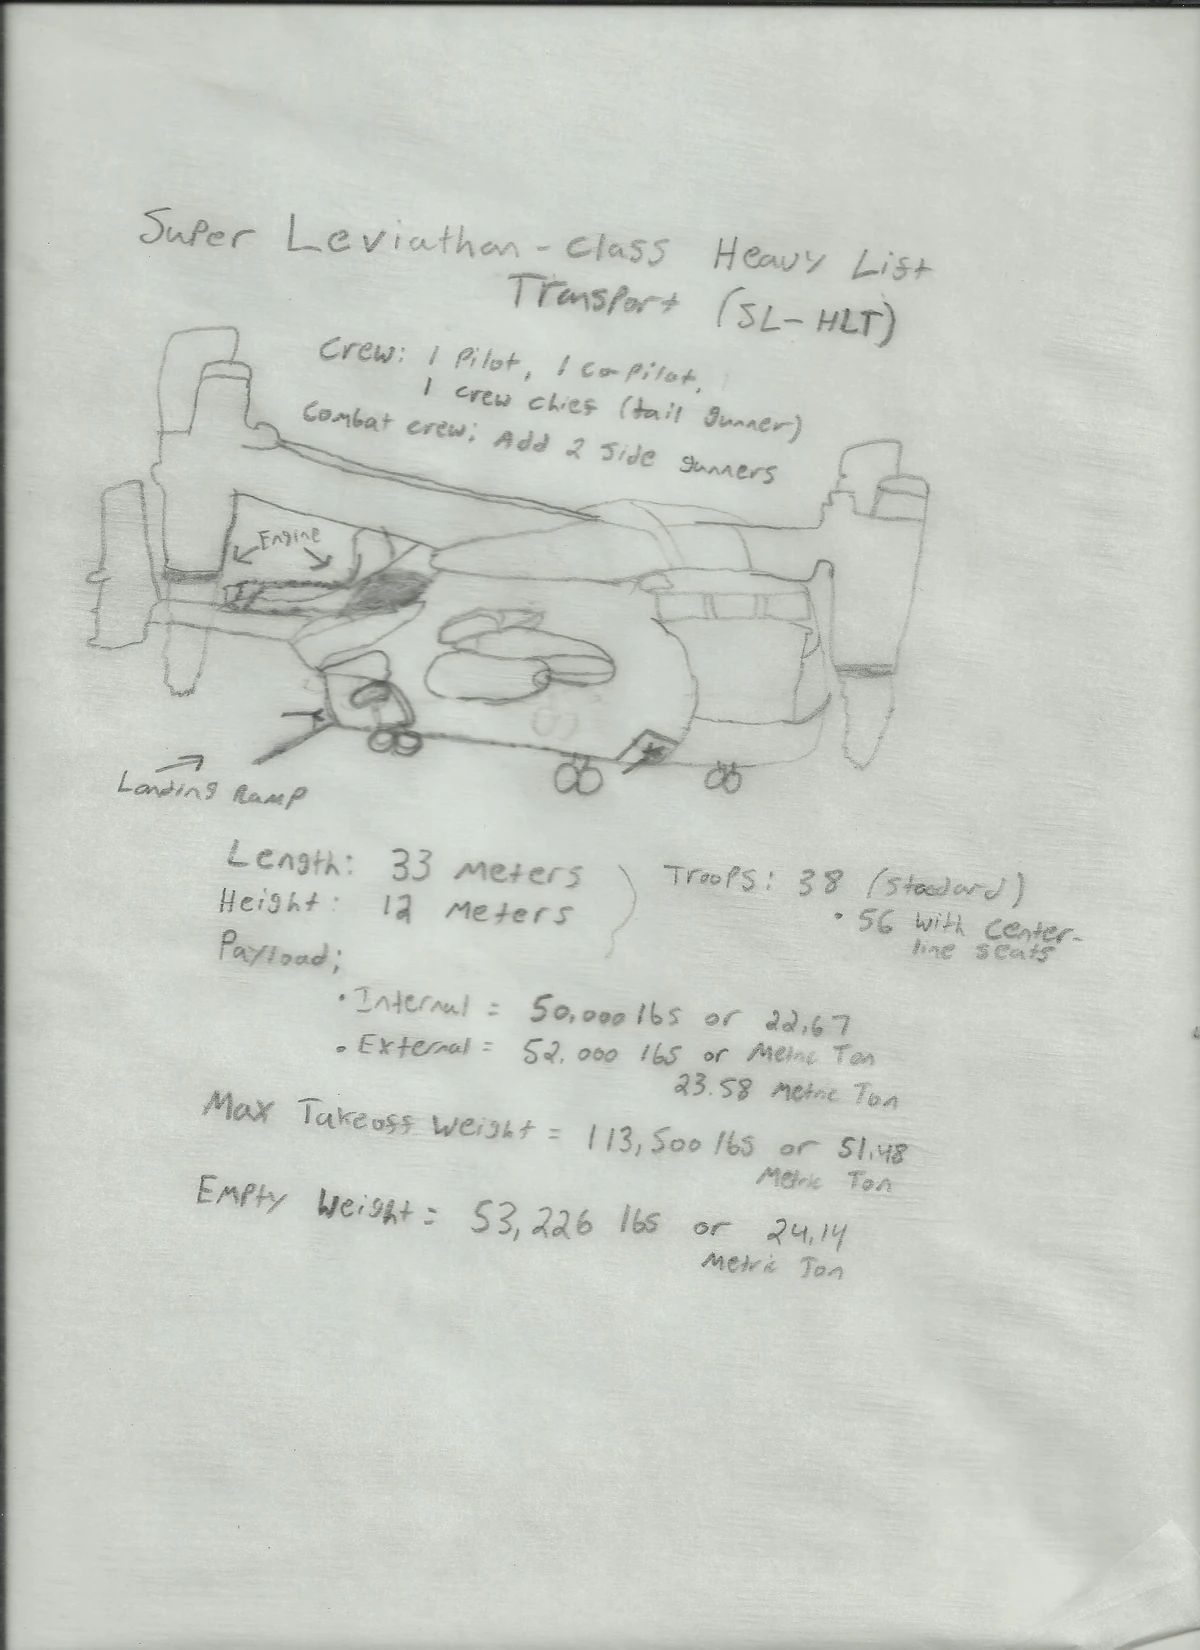 Super Leviathan-class Heavy Lift
Transport (SL-HLT)
Crew: 1 Pilot, 1 co-pilot,
1 crew chief (tail gunner)
Combat crew: Add 2 side gunners
Engine
Landing Ramp
Length: 33 Meters
Height: 12 Meters
Payload;
Troops: 38 (standard)
• 56 with center-
line seats
• Internal = 50,000 lbs or 22.67
Metric Ton
• External = 52,000 lbs or
23.58 Metric Ton
Max Takeoff Weight = 113,500 lbs or 51.48
Metric Ton
Empty Weight = 53,226 lbs or 24.14
Metric Ton